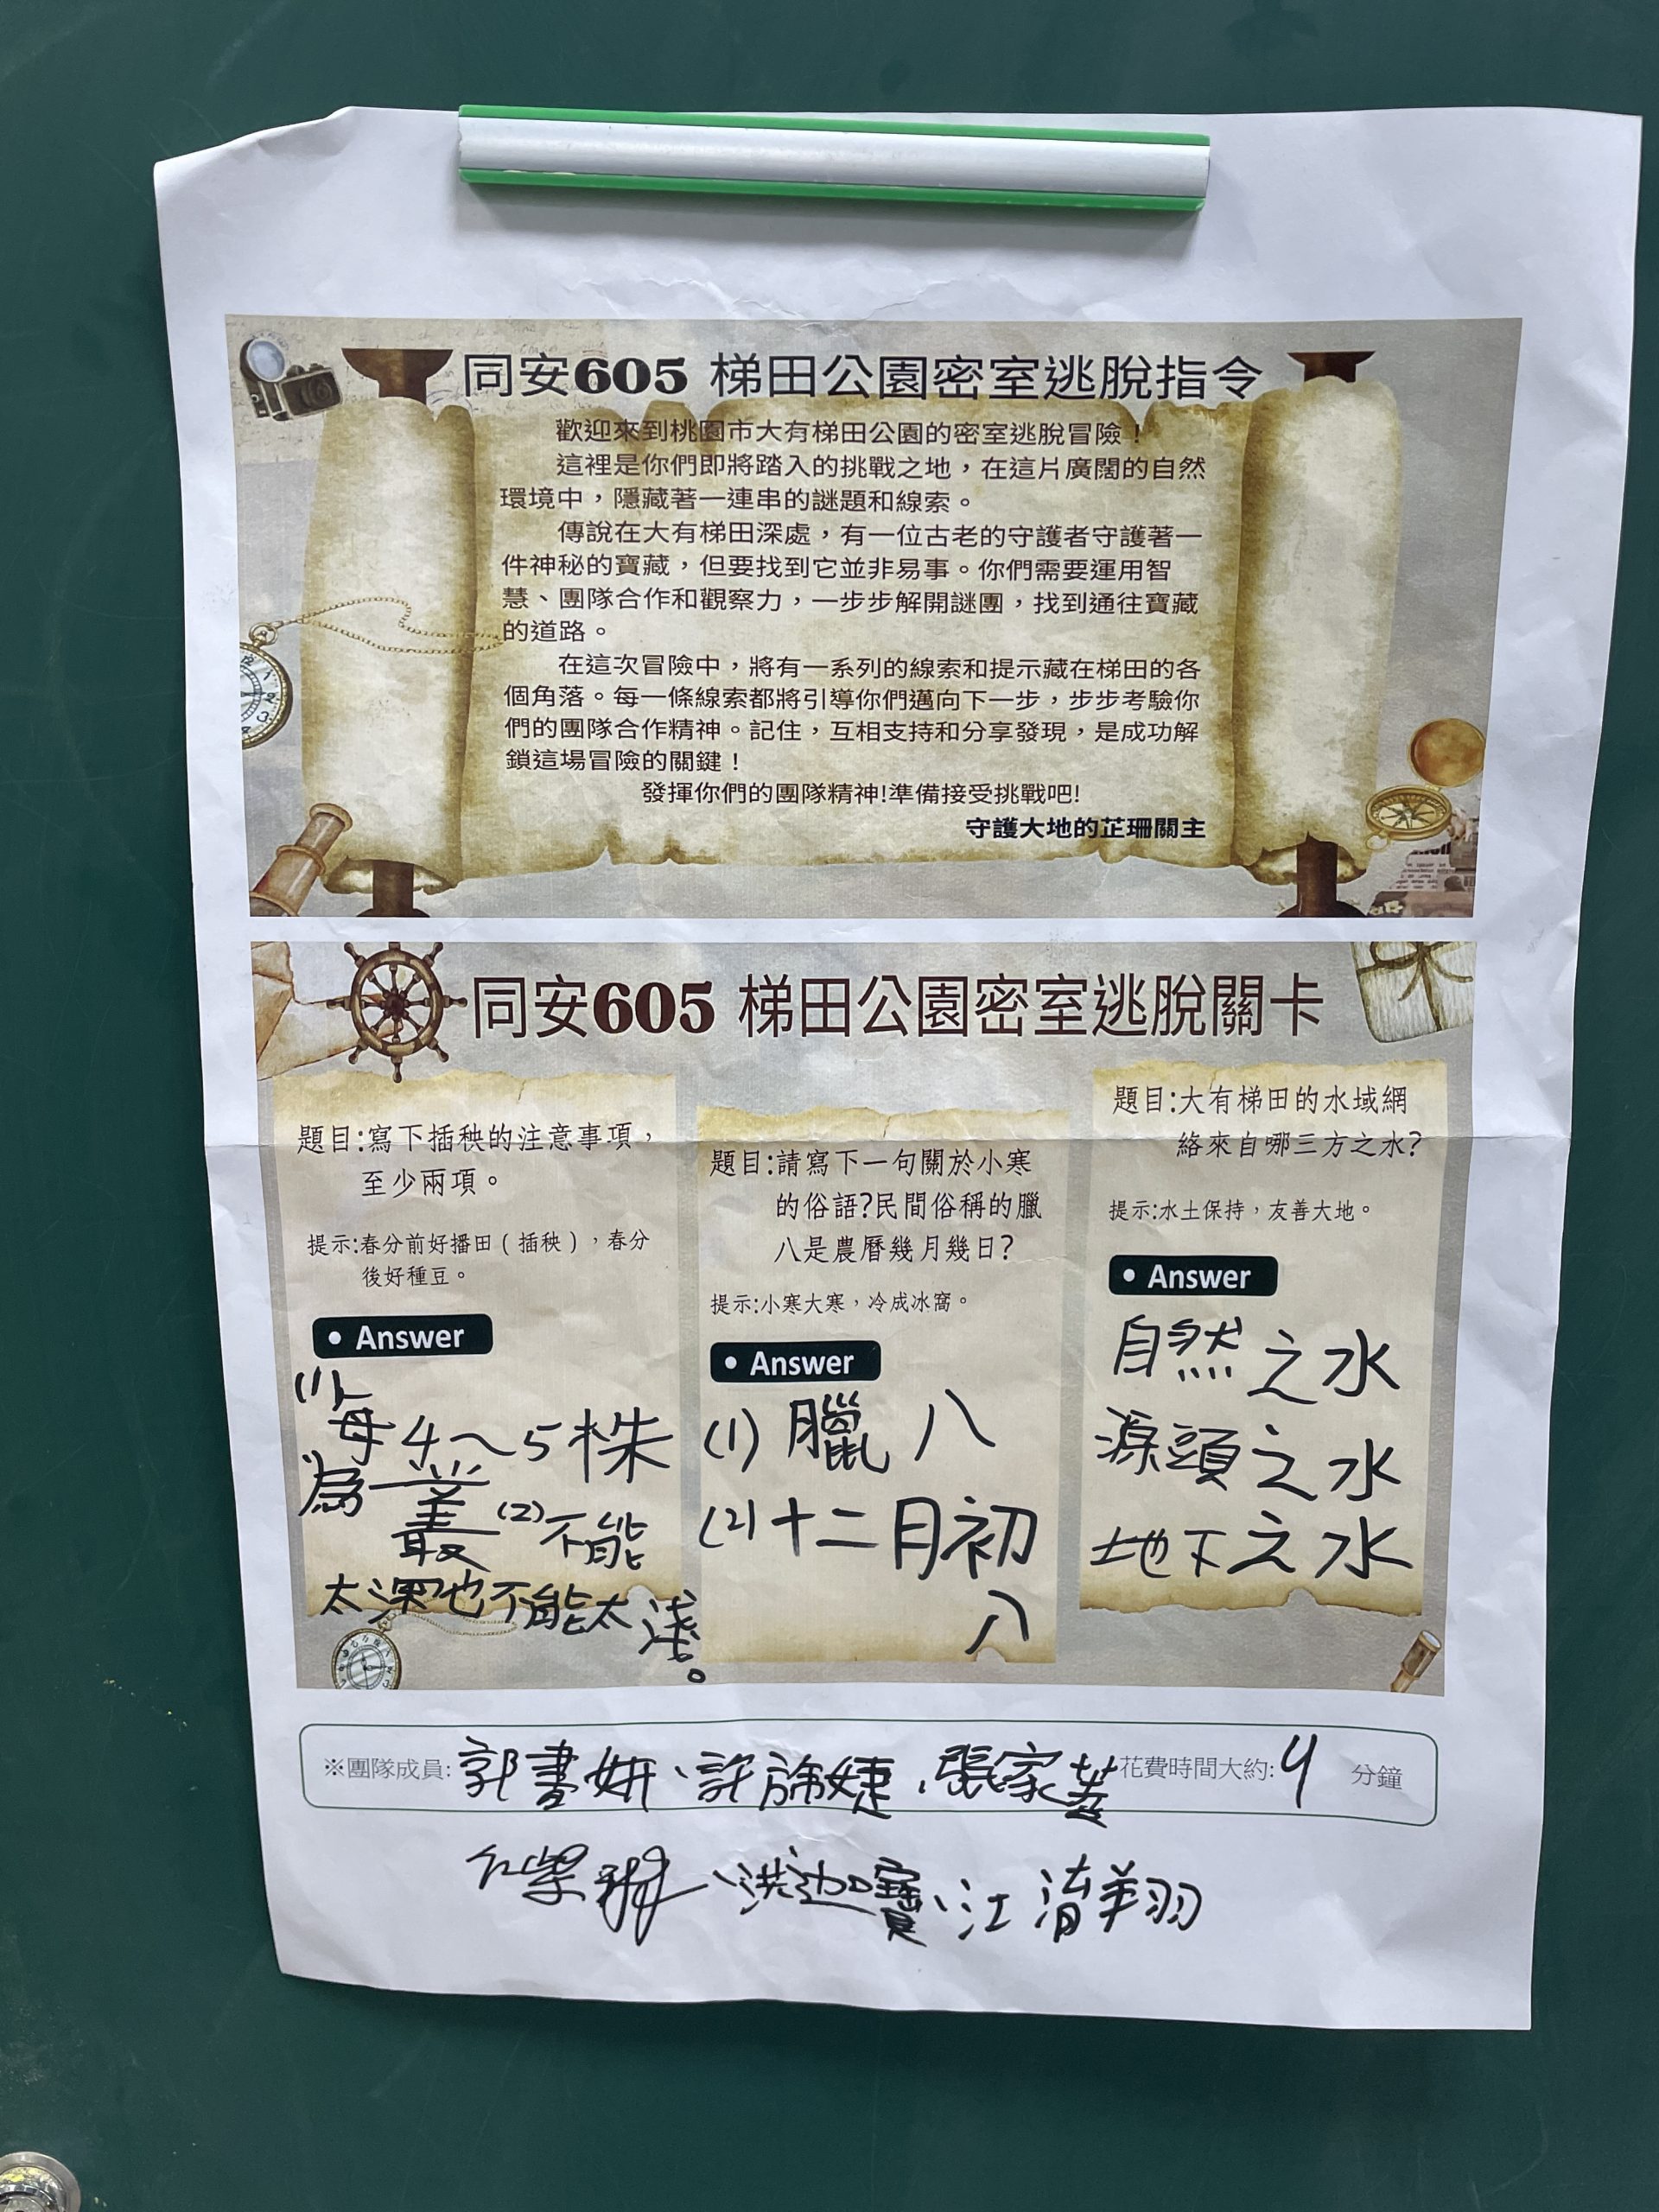 同安605 梯田公園密室逃脫指令
歡迎來到桃園市大有梯田公園的密室逃脫冒險！
這裡是你們即將踏入的挑戰之地，在這片廣闊的自然
環境中，隱藏著一連串的謎題和線索。
傳說在大有梯田深處，有一位古老的守護者守護著一
件神秘的寶藏，但要找到它並非易事。你們需要運用智
慧、團隊合作和觀察力，一步步解開謎團，找到通往寶藏
的道路。
在這次冒險中，將有一系列的線索和提示藏在梯田的各
個角落。每一條線索都將引導你們邁向下一步，步步考驗你
們的團隊合作精神。記住，互相支持和分享發現，是成功解
鎖這場冒險的關鍵！
發揮你們的團隊精神!準備接受挑戰吧!
守護大地的芷珊關主
同安605 梯田公園密室逃脫關卡
題目:寫下插秧的注意事項，
至少兩項。
提示:春分前好播田（插秧），春分
後好種豆。
• Answer
(1)
每4～5株
為一叢(2)不能
太深也不能太淺。
題目:請寫下一句關於小寒
的俗語?民間俗稱的臘
八是農曆幾月幾日?
提示:小寒大寒，冷成冰窩。
• Answer
(1) 臘八
(2) 十二月初
八
題目:大有梯田的水域網
絡來自哪三方之水?
提示:水土保持，友善大地。
• Answer
自然之水
源頭之水
地下之水
※團隊成員:郭書妍、許旆婕、張家蓁 花費時間大約:4 分鐘
、洪迦寶、江清翔